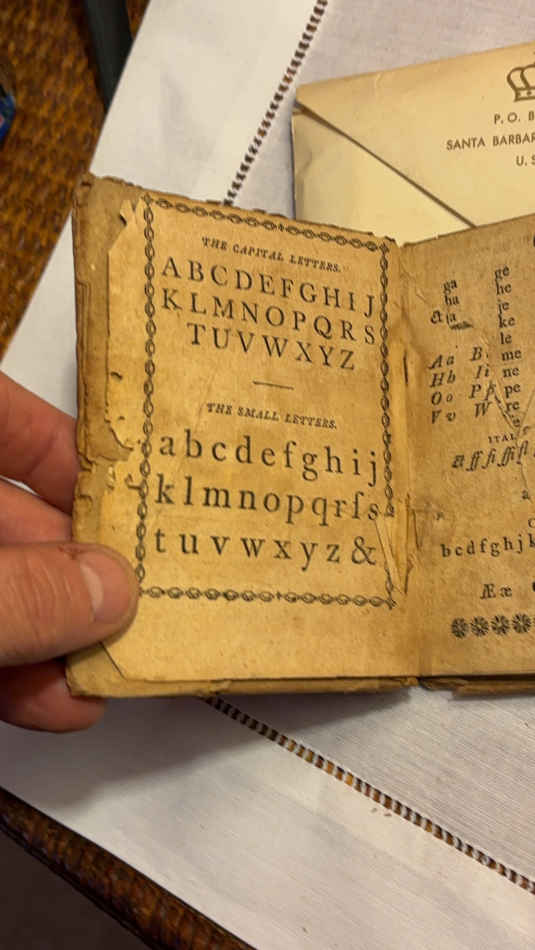 THE CAPITAL LETTERS.
A B C D E F G H I J
K L M N O P Q R S
T U V W X Y Z
THE SMALL LETTERS.
a b c d e f g h i j
k l m n o p q r ſ s
t u v w x y z &
P. O. B
SANTA BARBAR
U. S
ga ge
ha he
ja je
ke
le
Aa B me
Hb Ii ne
Oo P pe
Vv W re
ITAL
b c d f g h j k
Æ æ